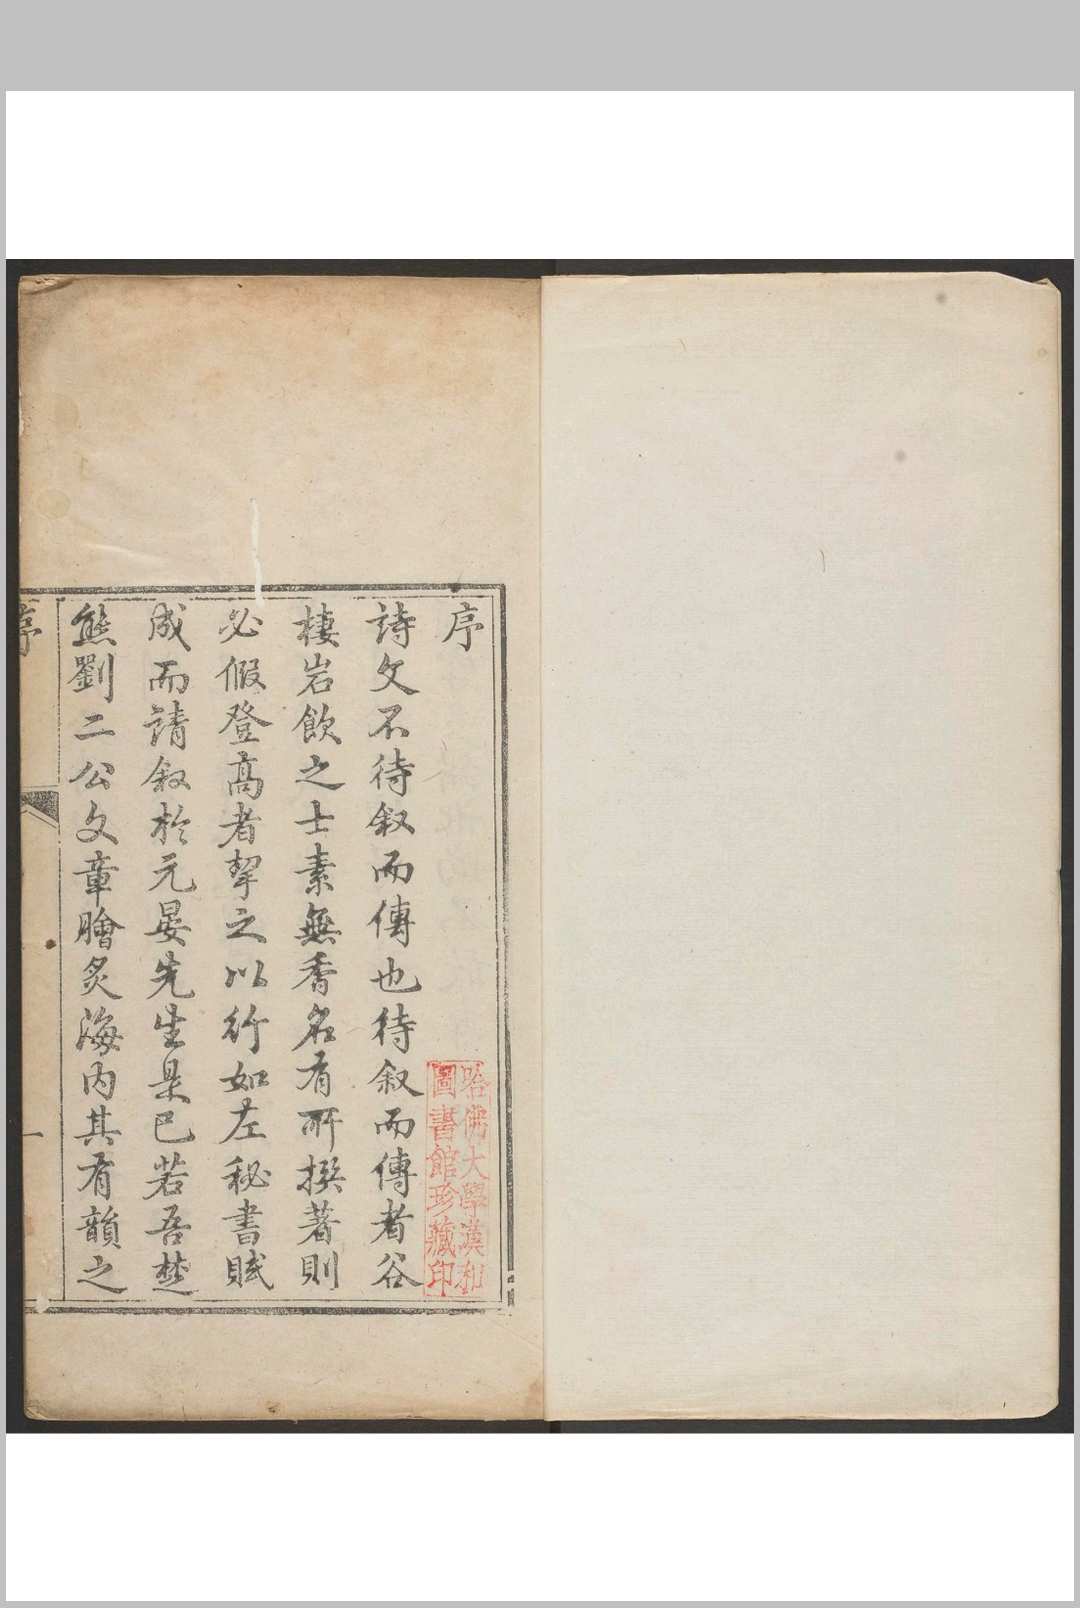 序
詩文不待叙而傳也待叙而傳者谷
棲岩飲之士素無香名有所撰著則
必假登高者挈之以行如左秘書賦
成而請叙於元晏先生是已若吾楚
熊劉二公文章膾炙海内其有韻之
序
一
哈佛大學漢和
圖書館珍藏印